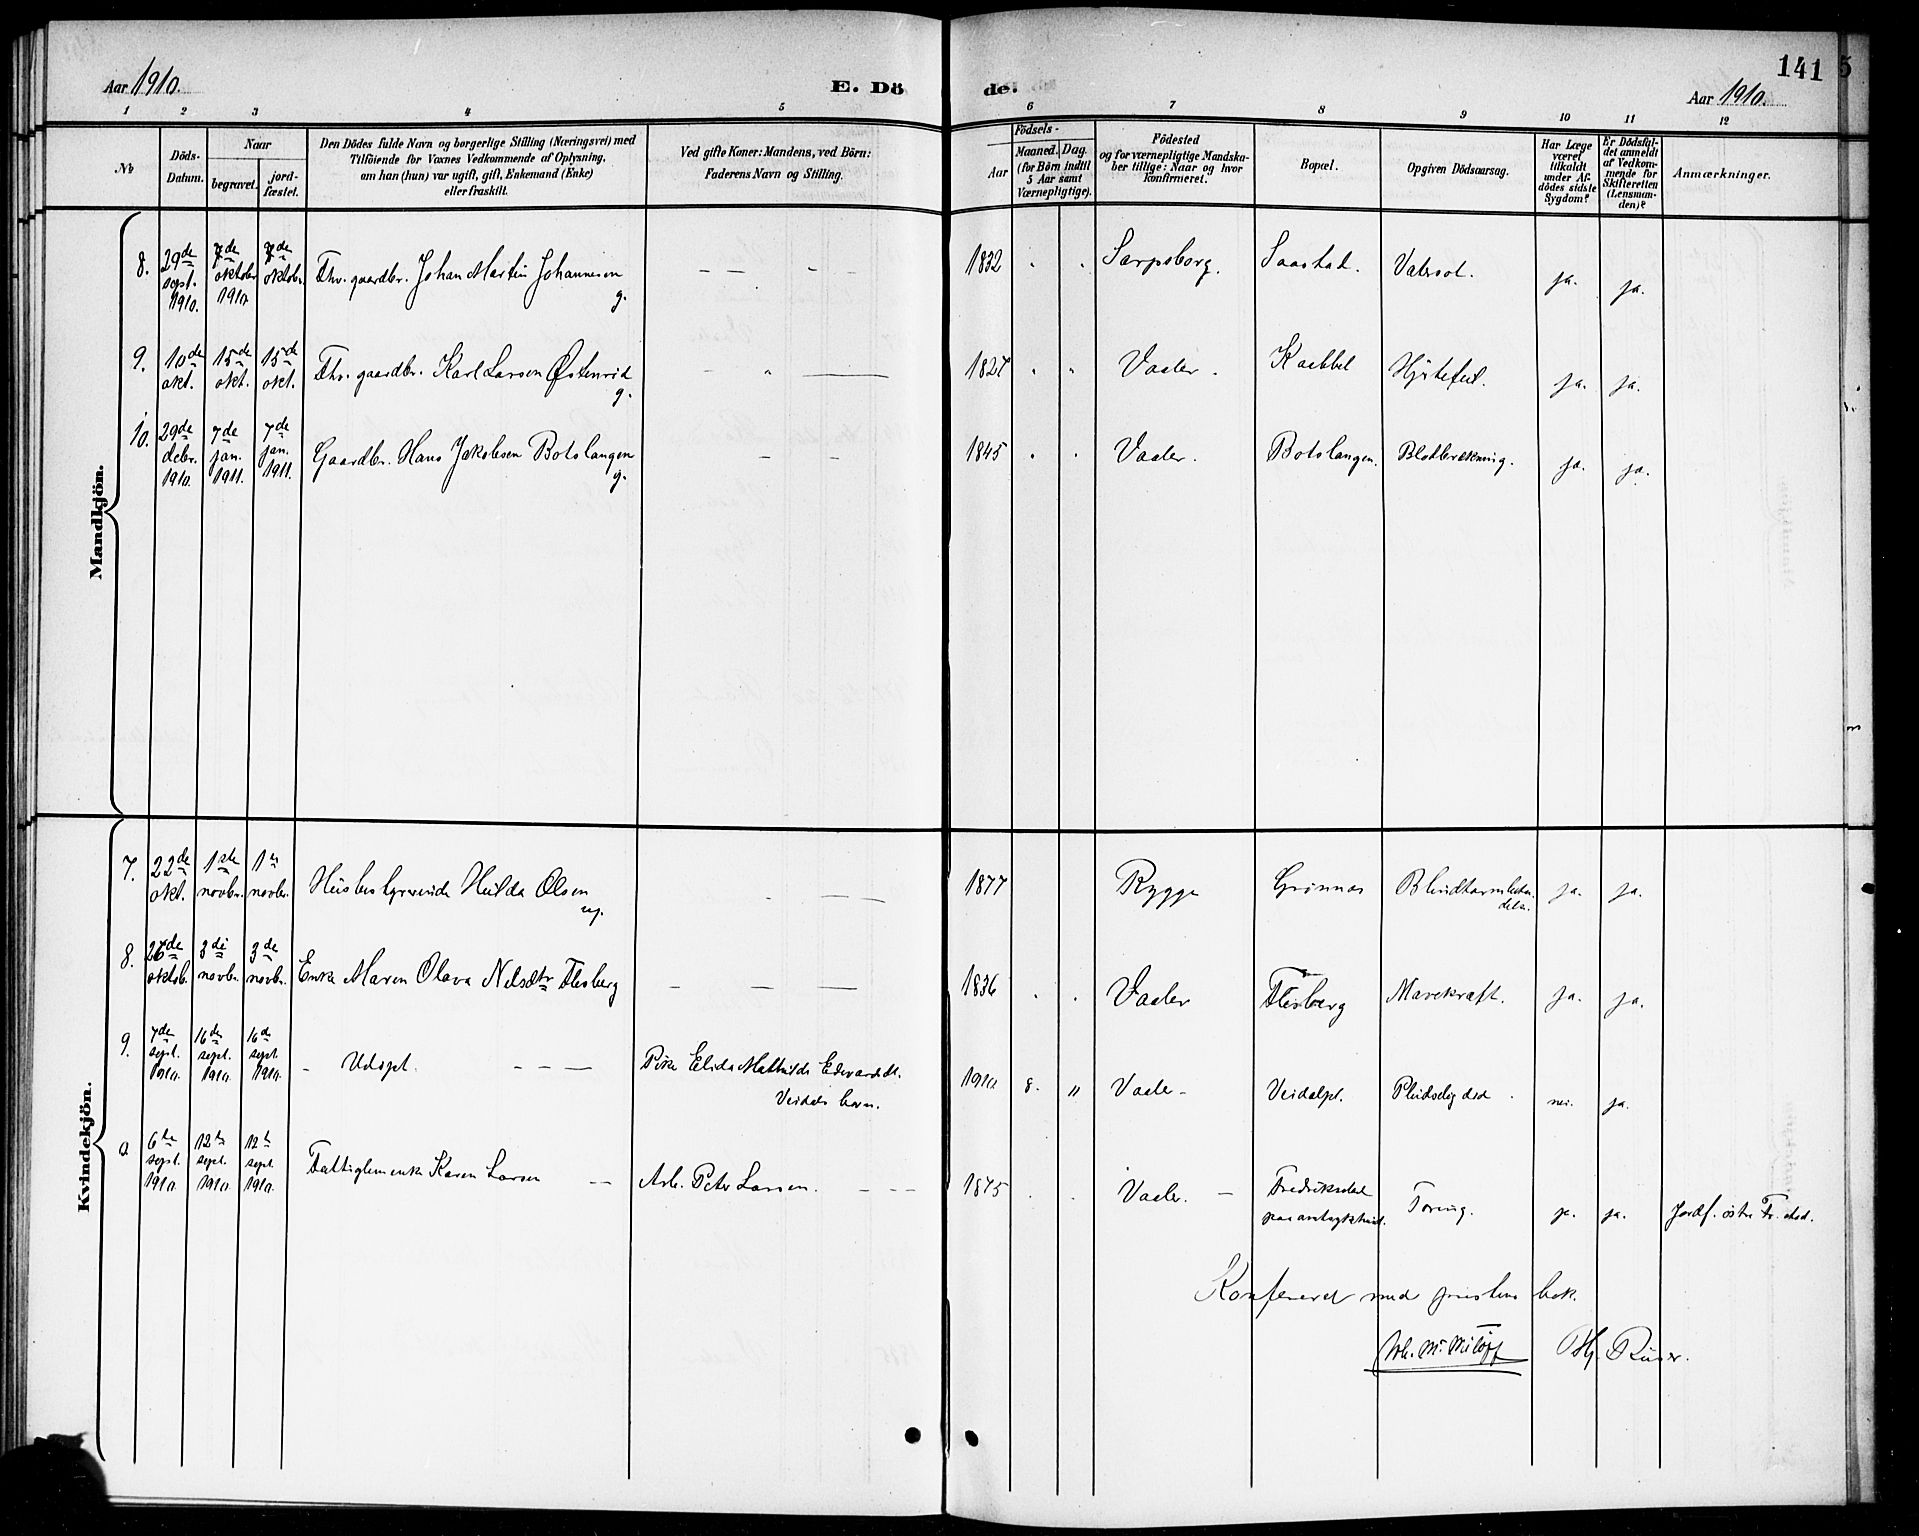 Aar 1910.
E. Döde.
141
5
Aar 1910.
1 2 3 4 5 6 7 8 9 10 11 12
№
Döds-Datum.
Naar
begravet.
jord-fæstet.
Den Dödes fulde Navn og borgerlige Stilling (Næringsvei) med
Tilföiende for Voxnes Vedkommende af Oplysning,
om han (hun) var ugift, gift, Enkemand (Enke)
eller fraskilt.
Ved gifte Koner: Mandens, ved Börn:
Faderens Navn og Stilling.
Födsels-
Aar
Maaned. Dag.
(for Börn indtil
5 Aar samt
Værnepligtige).
Födested
og for værnepligtige Mandska-
ber tillige: Naar og hvor
konfirmeret.
Bopæl.
Opgiven Dödsaarsag.
Har Læge
været
tilkaldt
under Af-
dödes sidste
Sygdom?
Er Dödsfal-
det anmeldt
af Vedkom-
mende for
Skifteretten
(Lensman-
den)?
Anmærkninger.
Mandkjön.
8. 29de sept. 1910. 7de oktober 1910 7de oktobr. Fhv. gaardbr. Johan Martin Johannesen g. 1832 Sarpsborg. Saastad. Vatersot. ja. ja.
9. 10de okt. 15de okt. 15de okt. Fhv. gaardbr. Karl Larsen Østenrød g. 1827 Vaaler. Kabbel Hjertefeil. ja. ja.
10. 29de debr. 1910. 7de jan. 1911. 7de jan. 1911. Gaardbr. Hans Jakobsen Botslangen g. 1845 Vaaler. Botslangen. Blodbrækning. ja. ja.
Kvindekjön.
7. 22de okt. 1ste novbr. 1ste novbr. Husbestyrerinde Hulda Olsen ug. 1877 Rygge Grønnas Blindtarmbeten-delse. ja. ja.
8. 26de oktob. 3die novbr. 3de novbr. Enke Maren Olava Nilsdtr Flesberg 1836 Vaaler Flesberg Mavekræft. ja. ja.
9. 7de sept. 1910. 16de sept. 1910. 16de sept. 1910. Udøpt. Pike Elida Mathilde Edvardsdt.
Veidals barn. 1910 8. " Vaaler Veidalpl. Pludselig død. nei. ja.
6te sept. 1910. 12te sept. 1910. 12te sept. 1910. Fattiglemenke Karen Larsen Arb. Peter Larsen. 1875 Vaaler. Fredrikstad
paa amtsykehuset. Tæring. ja. ja. Jordf. østre Fr.stad.
Konfereret med prestens bok.